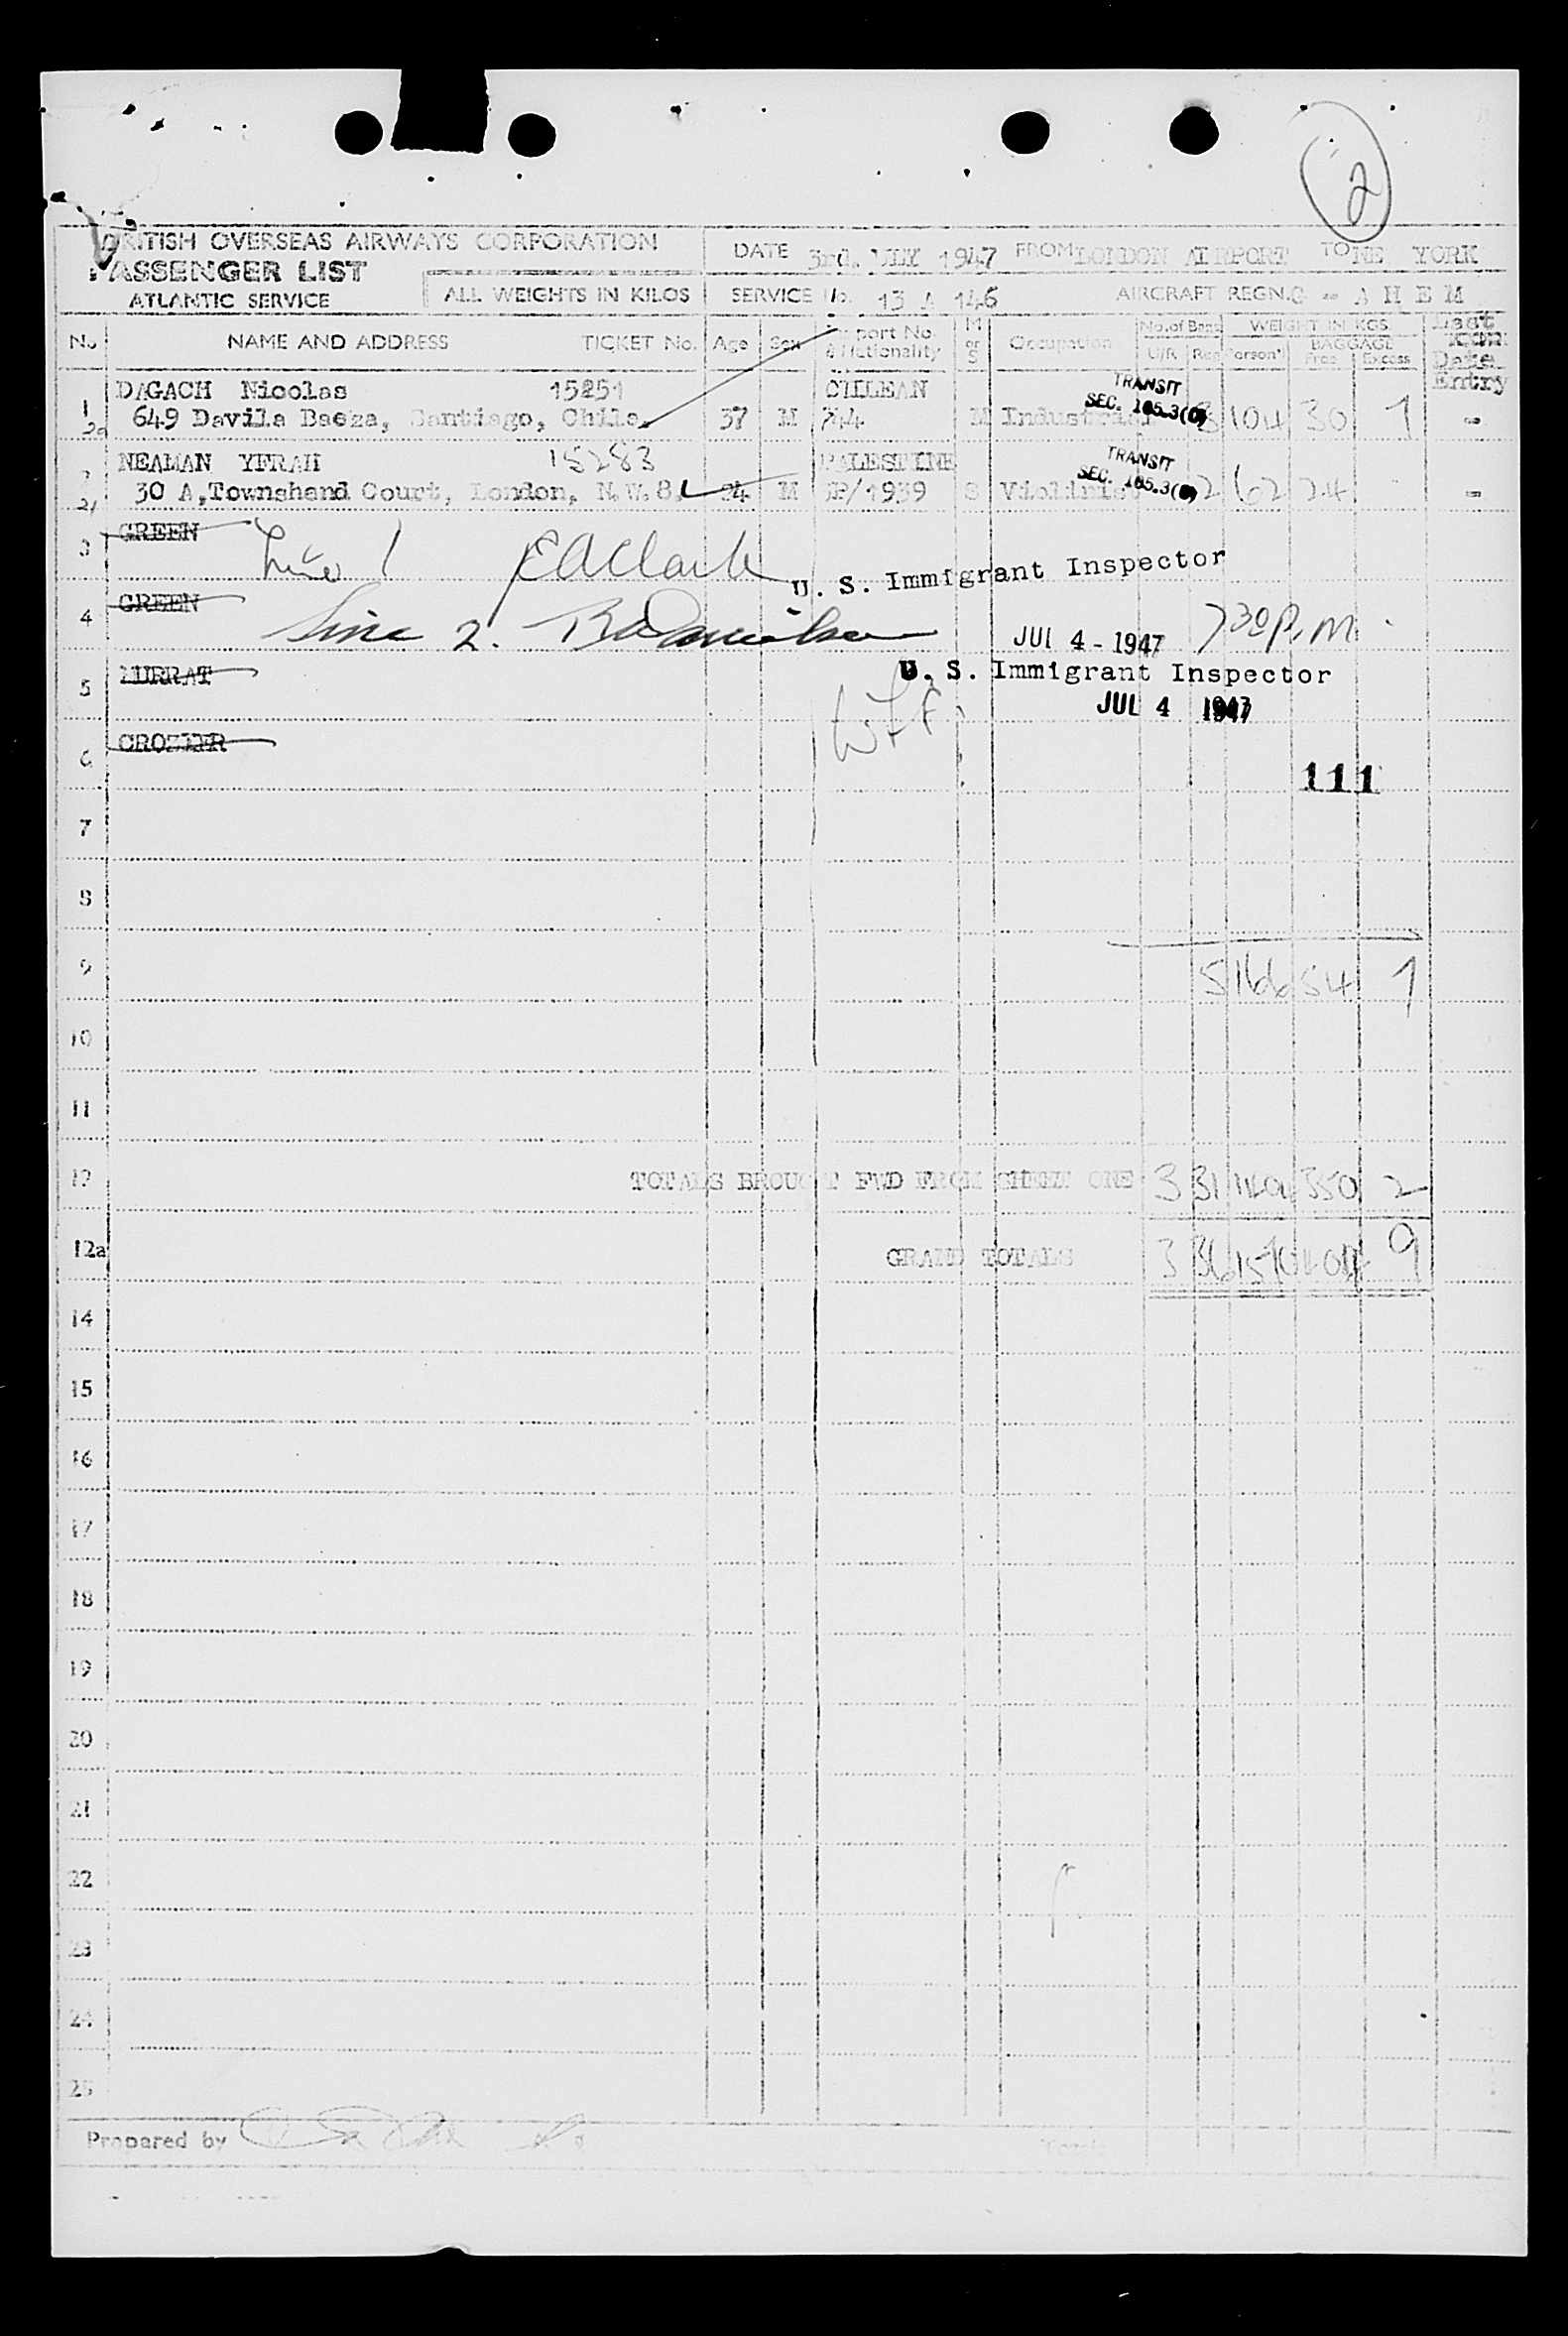 2
BRITISH OVERSEAS AIRWAYS CORPORATION
PASSENGER LIST
ATLANTIC SERVICE
ALL WEIGHTS IN KILOS
DATE 3rd. JULY 1947 FROM LONDON AIRPORT TO NE YORK
SERVICE No. 13 A 146 AIRCRAFT REGN. G - A H E M
No NAME AND ADDRESS TICKET No. Age Sex port No. & Nationality M or S Occupation No. of Bags U/R Reg WEIGHT IN KGS Person'l BAGGAGE Free Excess Last Date Entry
1 DAGACH Nicolas 15251 CHILEAN TRANSIT
649 Davila Baeza, Santiago, Chile. 37 M 744 M Industrial SEC. 105.3(C) 3 104 30 7 -
2 NEAMAN YFRAH 15283 PALESTINE TRANSIT
21 30 A, Townshend Court, London, N.W.8. 24 M P/1939 S Violinist SEC. 105.3(C) 2 62 24 -
3 GREEN
Line 1 EAClark U. S. Immigrant Inspector
4 GREEN
Line 2. JUL 4 - 1947 730 P.m.
5 MURRAT U. S. Immigrant Inspector
JUL 4 1947
6 CROZIER
111
7
8
9 5 166 54 7
10
11
12 TOTALS BROUGHT FWD FROM SHEET ONE 3 31 1404 350 2
12a GRAND TOTALS 3 36 1570 404 9
14
15
16
17
18
19
20
21
22
23
24
25
Prepared by